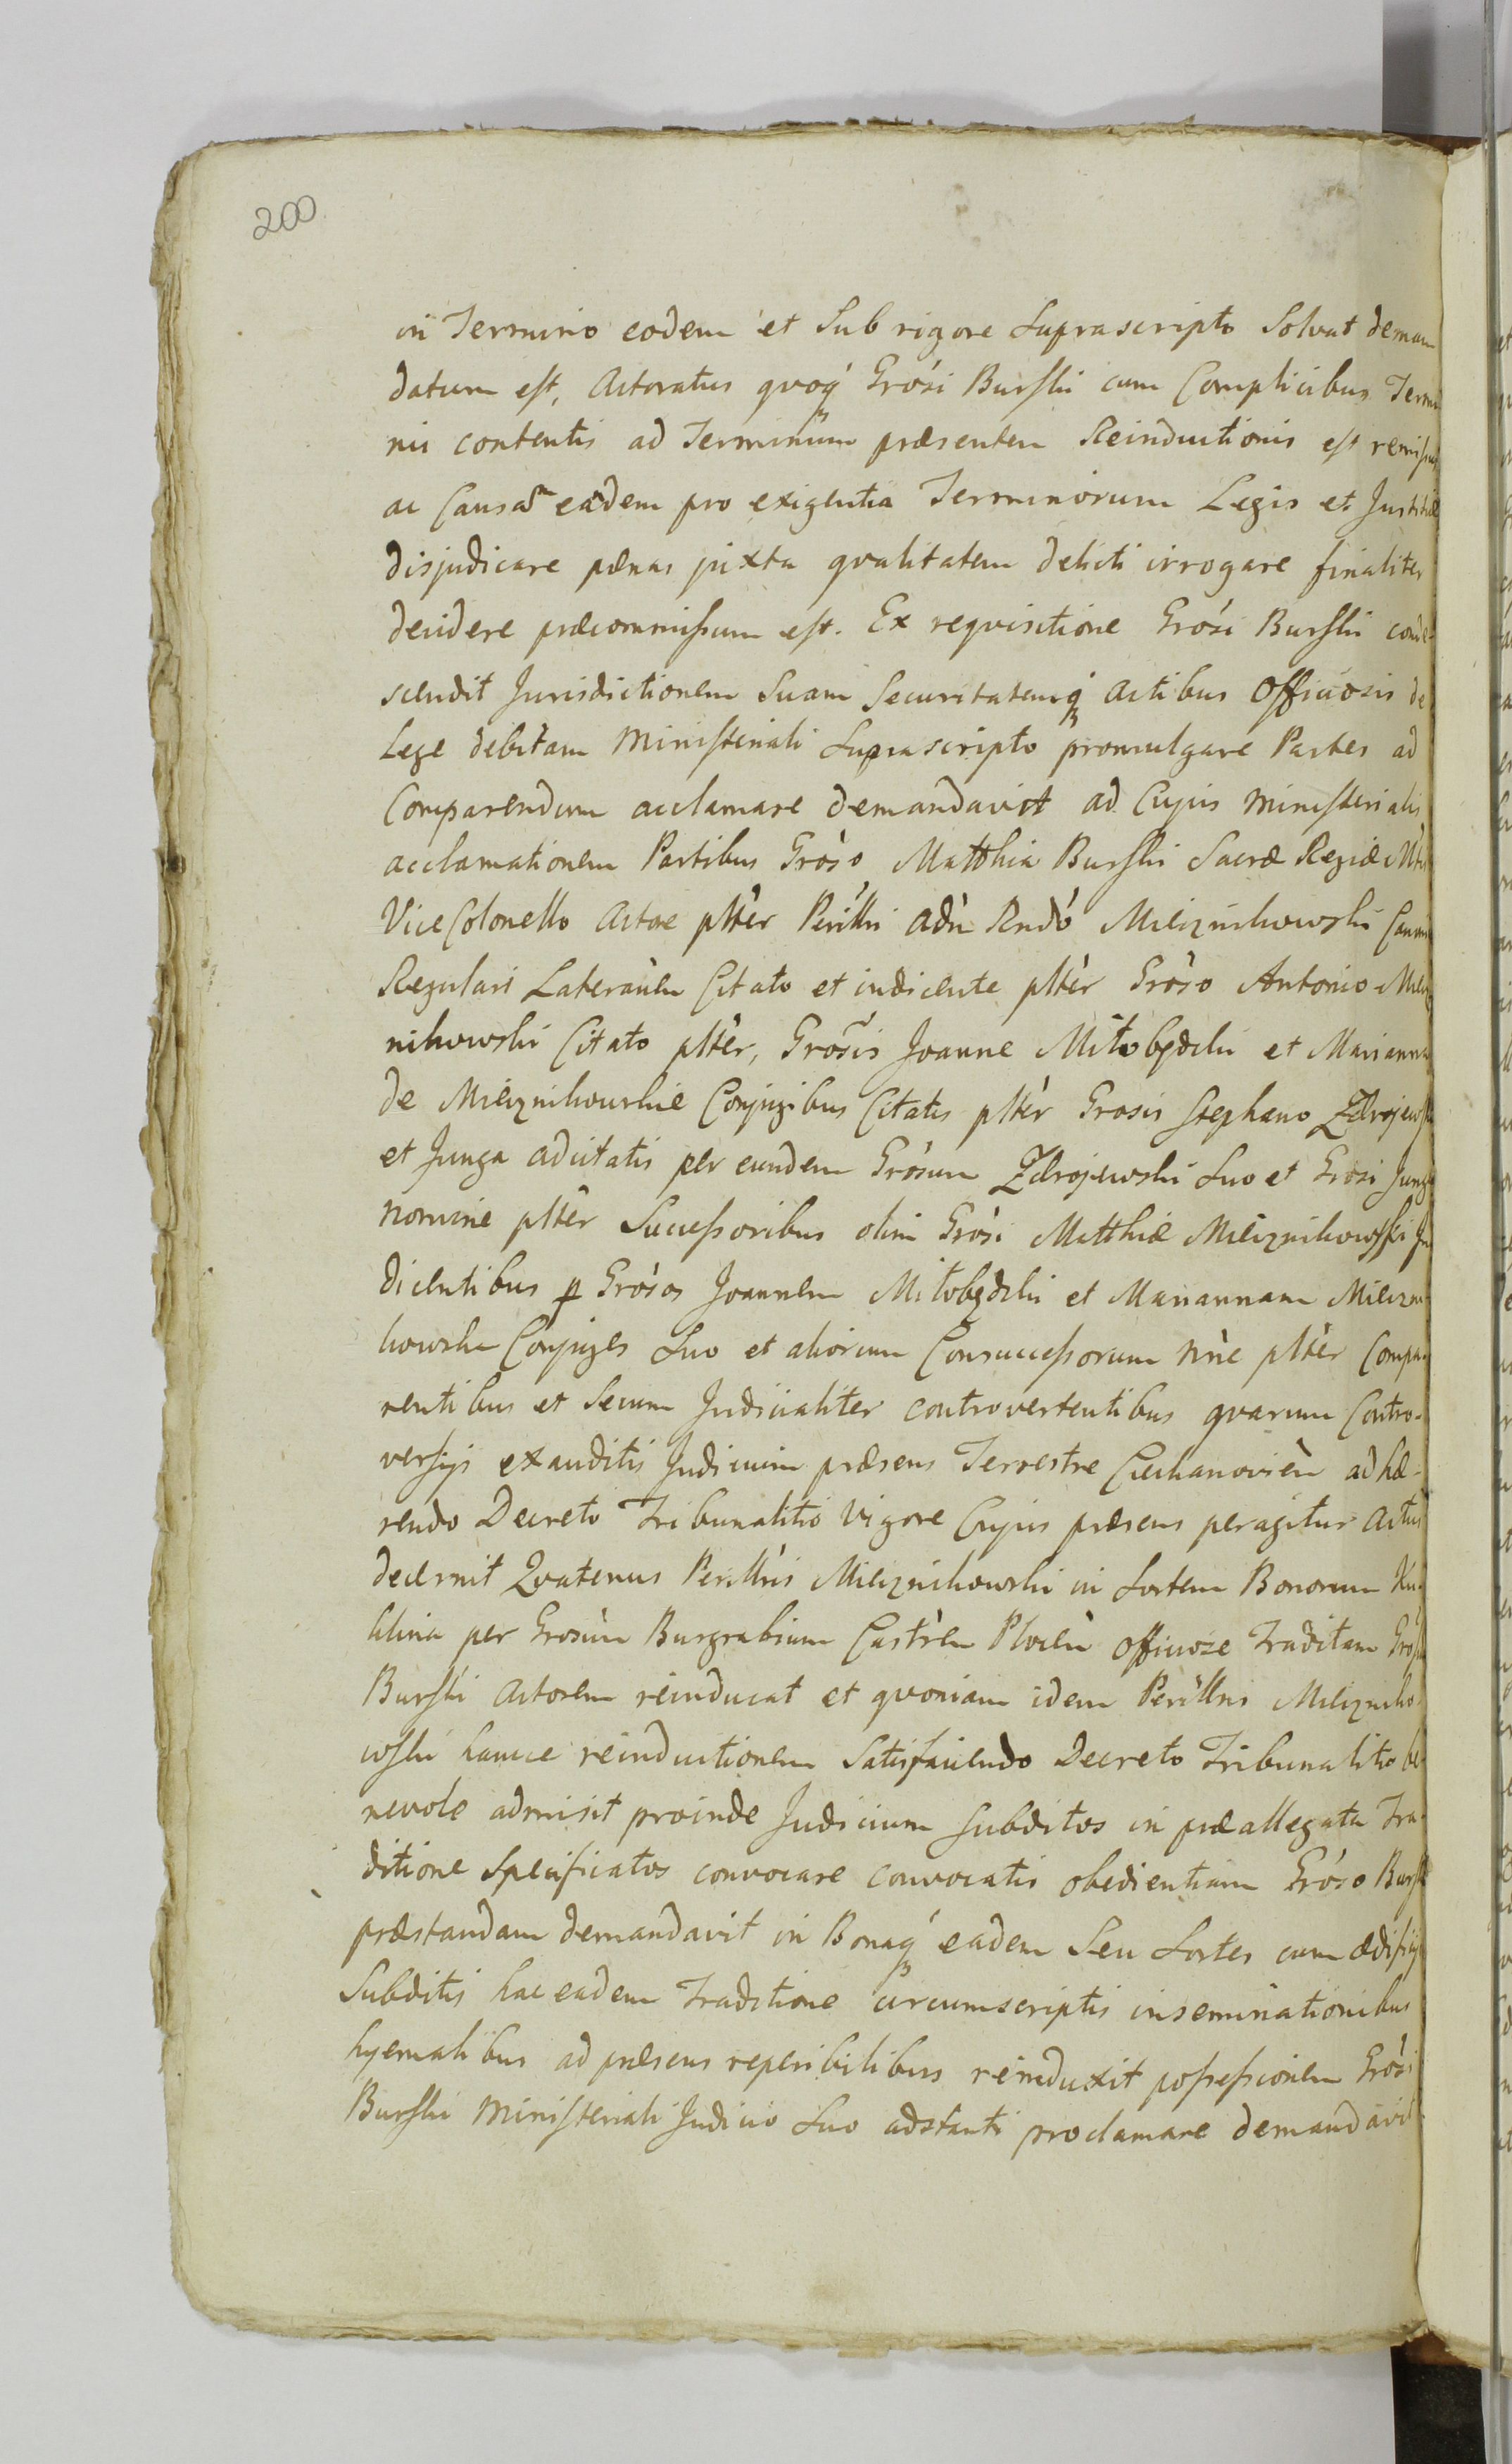 200
in Termino eodem et Sub rigore Suprascripto Solvat deman
datum est, Actoratus qvoq́ Grósi Burski cum Complicibus Termi
nis contentis ad Terminum præsentem Reinductionis est remissus
ac Causam eadem pro exigentia Terminorum Legis et Justitiæ
disjudicare pænas juxta qvalitatem delicti irrogare finaliter
decidere præcommissum est. Ex reqvisitione Grósi Burski conde-
scendit Jurisdictionem Suam Securitatemq́ Actibus Officiosis de
Lege debitam Ministeriali Suprascripto promulgare Partes ad
Comparendum acclamare demandavit ad Cujus Ministerialis
acclamationem Partibus Gróso Matthia Burski Sacræ Regiæ Mtis
Vice Colonello Actore plter Perillri Adń Rndó Miecznikowski Canon
Regulari Lateranen Citato et indicente plter Gróso Antonio Miecz
nikowski Citato plter, Grósis Joanne Miłobędzki et Marianna
de Miecznikowskie Conjugibus Citatis plter Grosis Stephano Zdrojewski
et Junga adcitatis per eundem Grósum Zdrojewski Suo et Grosi Junga
nomine plter Successoribus olim Grósi Matthiæ Miecznikowski In
dicentibus p Grósos Joannem Miłobędzki et Mariannam Mieczni
kowskie Conjuges Suo et aliorum Consuccessorum nńe plter Compa-
rentibus et Secum Judicialiter controvertentibus qvarum Contro-
versijs exauditis Judicium præsens Terrestre Ciechanovień adhæ-
rendo Decreto Tribunalitio vigore Cujus præsens peragitur Actus
decernit Qvatenus Perillris Miecznikowski in Sortem Bonorum Ku-
klina per Grosum Burgrabium Castren Plocen officiose Traditam Grosum
Burski Actorem reinducat et qvoniam idem Perillris Mieczniko
wski hancce reinductionem Satisfaciendo Decreto Tribunalitio be-
nevole admisit proinde Judicium Subditos in præallegata Tra-
ditione Specificatos convocare convocatis obedientiam Gróso Burski
præstandam demandavit in Bonaq́ eadem Seu Sortes cum ædificijs
Subditis hac eadem Traditione circumscriptis inseminationibus
hyemalibus ad præsens reperibilibus reinduxit possessionem Grósi
Burski Ministeriali Judicio Suo adstanti proclamare demandavit